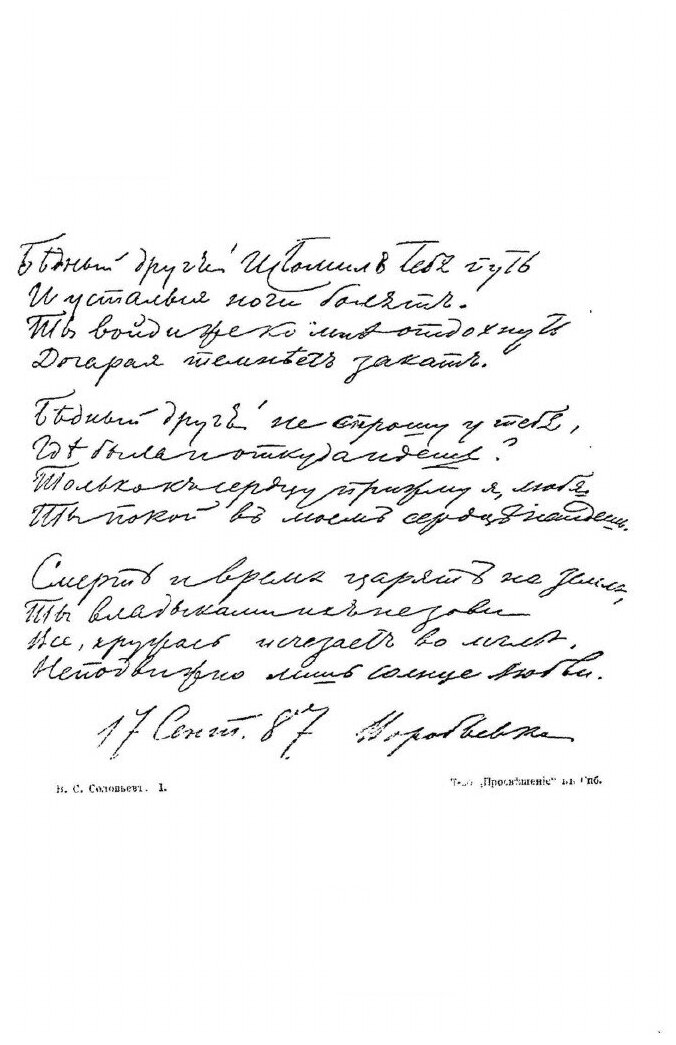 Бѣдный другъ! Истомилъ тебя путь
И усталыя ноги болятъ.
Ты войди же ко мнѣ отдохнуть
Догарая темнѣетъ закатъ.
Бѣдный другъ! не спрошу у тебя,
Гдѣ была и откуда идешь?
Только къ сердцу прижму я, любя
Ты покой въ моемъ сердцѣ найдешь.
Смерть и время царятъ на земли,
Ты владыками ихъ не зови
Все, кружась исчезаетъ во мглѣ,
Неподвижно лишь солнце любви.
17 Сент. 87 Воробьевка
В. С. Соловьевъ. I.
„Просвѣщеніе" въ Спб.